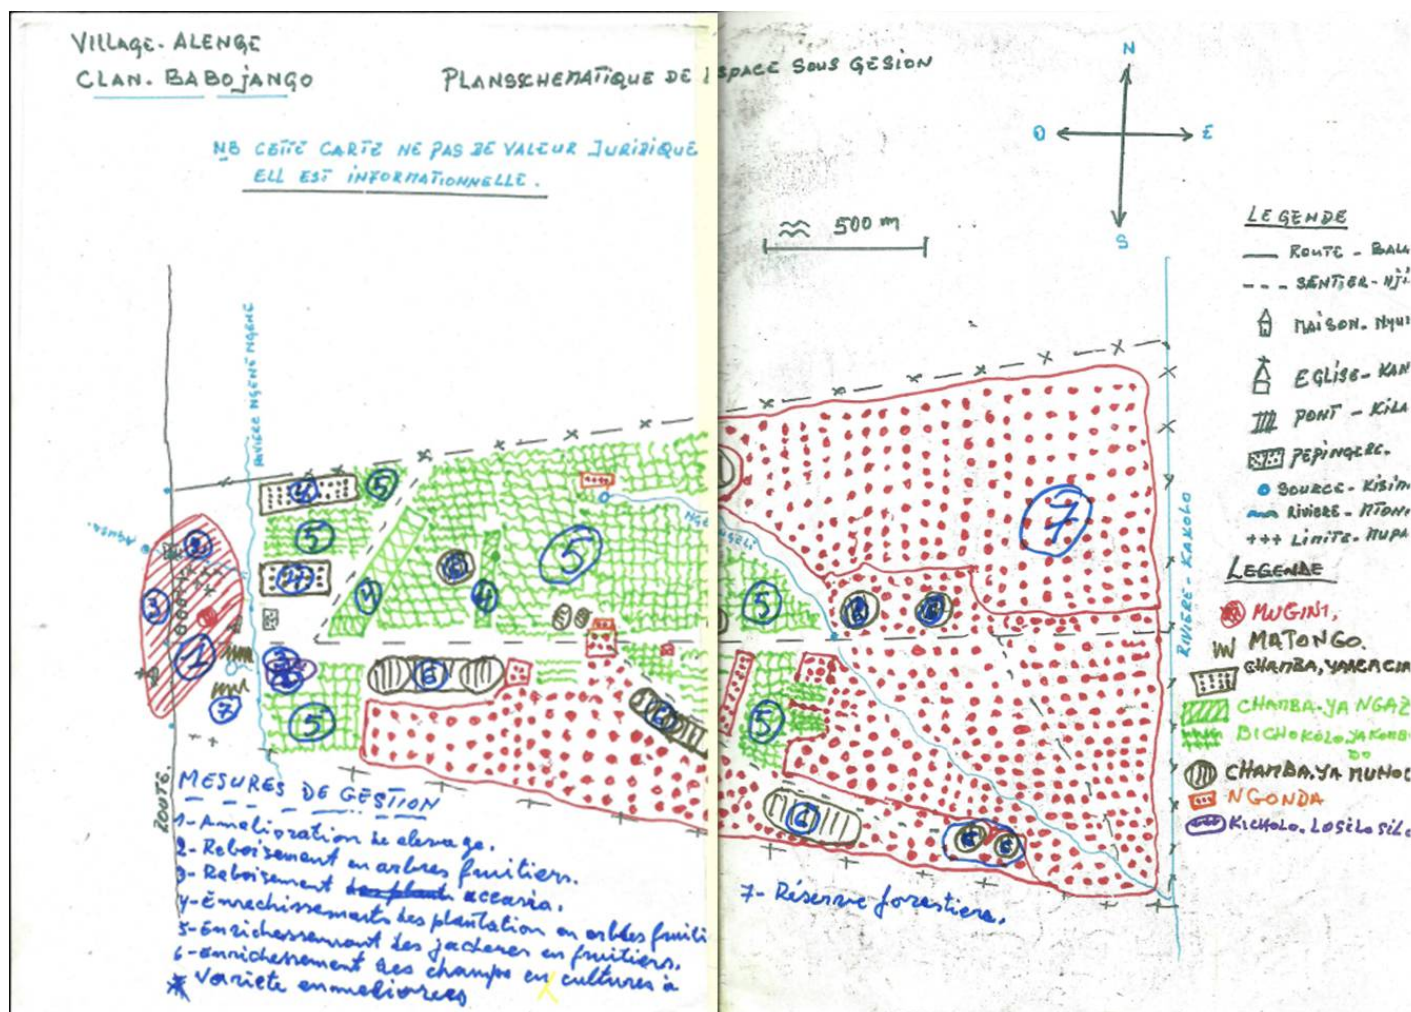 VILLAGE-ALENGE
CLAN. BABOJANGO
PLANSSCHEMATIQUE DE ESPACE SOUS GESION
NB CETTE CARTE NE PAS DE VALEUR JURIDIQUE
ELL EST INFORMATIONNELLE.
N
O
E
S
500 m
LEGENDE
ROUTE - BALA
SENTIER - NJI
MAISON - NYU
EGLISE - KAN
PONT - KILA
PEPINIERE.
SOURCE - KISIM
RIVIERE - MTONI
+++ LIMITE - MUPA
LEGENDE
MUGINI,
MATONGO.
CHAMBA, YA ACACIA
CHAMBA-YA NGAZ
BICHOKOLO, YA KOMBO
DO
CHAMBA.YA MUHOG
NGONDA
KICHOLO. LOSILO SILO
RIVIERE NGENE NGENE
RIVIERE - KAKOLO
ROUTE.
4
5
5
4
2
3
1
7
5
4
6
4
5
5
7
6
6
5
6
6
6
6
6
MESURES DE GESTION
1- Amelioration de elevage.
2- Reboisement en arbres fruitiers.
3- Reboisement des plant accasia.
4- Enrechissements des plantation en arbres fruiti
5- Enrichessement des jacheres en fruitiers.
6- enrichessement des champs en cultures à
Variete enmeliorees
7- Réserve forestiere.